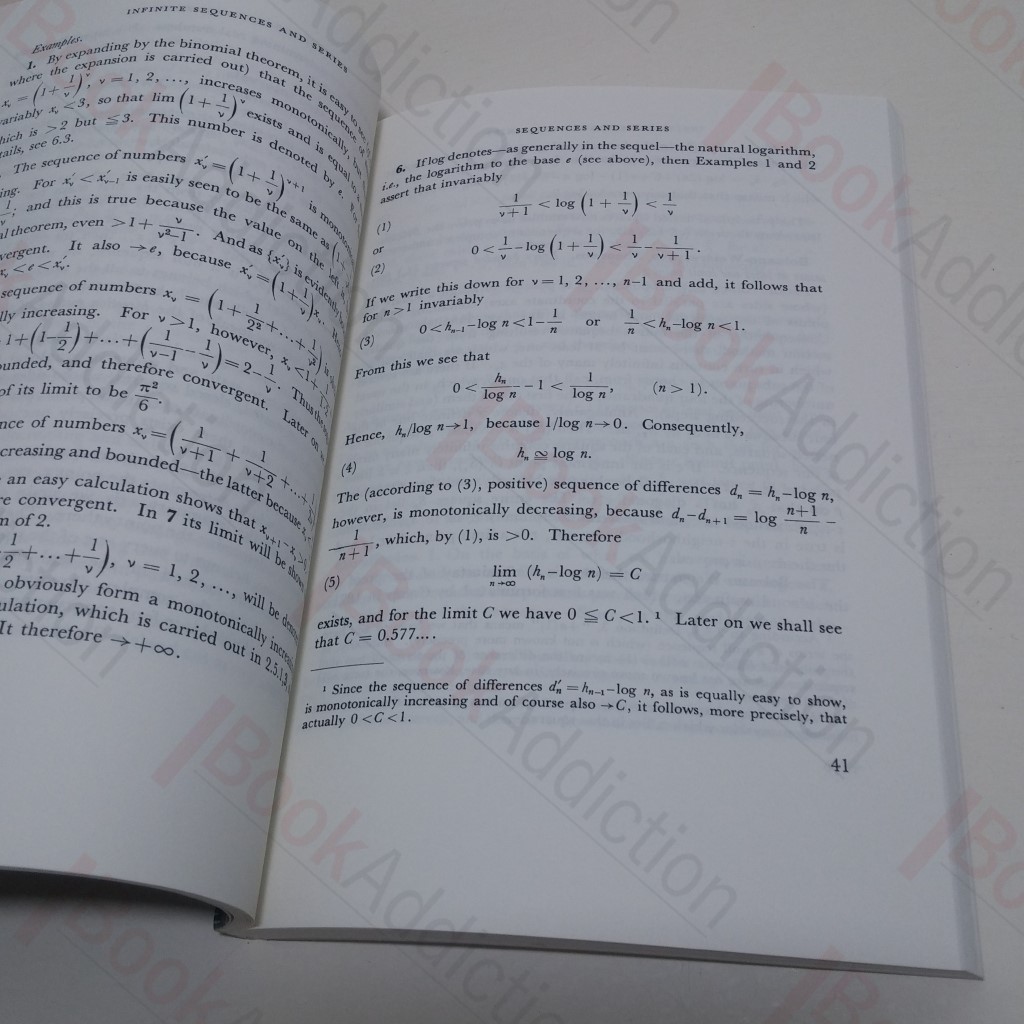 INFINITE SEQUENCES AND SERIES
Examples.
1. By expanding by the binomial theorem, it is easy to
where the expansion is carried out) that the sequence of
x_ν = (1 + 1/ν)^ν, ν = 1, 2, ..., increases monotonically,
variably x_ν < 3, so that lim (1 + 1/ν)^ν exists and is equal to
which is > 2 but ≦ 3. This number is denoted by e. For
tails, see 6.3.
The sequence of numbers x′_ν = (1 + 1/ν)^ν+1 is
ing. For x′_ν < x′_ν−1 is easily seen to be the same as
and this is true because the value on the left
al theorem, even > 1 + ν/ν²−1. And as {x′_ν} is evidently
vergent. It also → e, because x′_ν = (1 + 1/ν) x_ν.
x_ν < e < x′_ν.
sequence of numbers x_ν = (1 + 1/2² + ... + 1/ν²) is
lly increasing. For ν > 1, however, x_ν < 1 +
1 + (1 − 1/2) + ... + (1/ν−1 − 1/ν) = 2 − 1/ν. Thus the
ounded, and therefore convergent. Later on
of its limit to be π²/6.
nce of numbers x_ν = (1/ν+1 + 1/ν+2 + ...
creasing and bounded—the latter because
an easy calculation shows that x_ν+1 − x_ν > 0,
re convergent. In 7 its limit will be shown
m of 2.
1/2 + ... + 1/ν), ν = 1, 2, ..., will be
obviously form a monotonically
ulation, which is carried out in 2.5.1,3,
It therefore → +∞.
SEQUENCES AND SERIES
6. If log denotes—as generally in the sequel—the natural logarithm,
i.e., the logarithm to the base e (see above), then Examples 1 and 2
assert that invariably
(1) 1/ν+1 < log (1 + 1/ν) < 1/ν
or
(2) 0 < 1/ν − log (1 + 1/ν) < 1/ν − 1/ν+1.
If we write this down for ν = 1, 2, ..., n−1 and add, it follows that
for n > 1 invariably
(3) 0 < h_n−1 − log n < 1 − 1/n or 1/n < h_n − log n < 1.
From this we see that
0 < h_n/log n − 1 < 1/log n, (n > 1).
Hence, h_n/log n → 1, because 1/log n → 0. Consequently,
(4) h_n ≅ log n.
The (according to (3), positive) sequence of differences d_n = h_n − log n,
however, is monotonically decreasing, because d_n − d_n+1 = log n+1/n −
1/n+1, which, by (1), is > 0. Therefore
(5) lim n→∞ (h_n − log n) = C
exists, and for the limit C we have 0 ≦ C < 1. ¹ Later on we shall see
that C = 0.577....
¹ Since the sequence of differences d′_n = h_n−1 − log n, as is equally easy to show,
is monotonically increasing and of course also → C, it follows, more precisely, that
actually 0 < C < 1.
41
BookAddiction